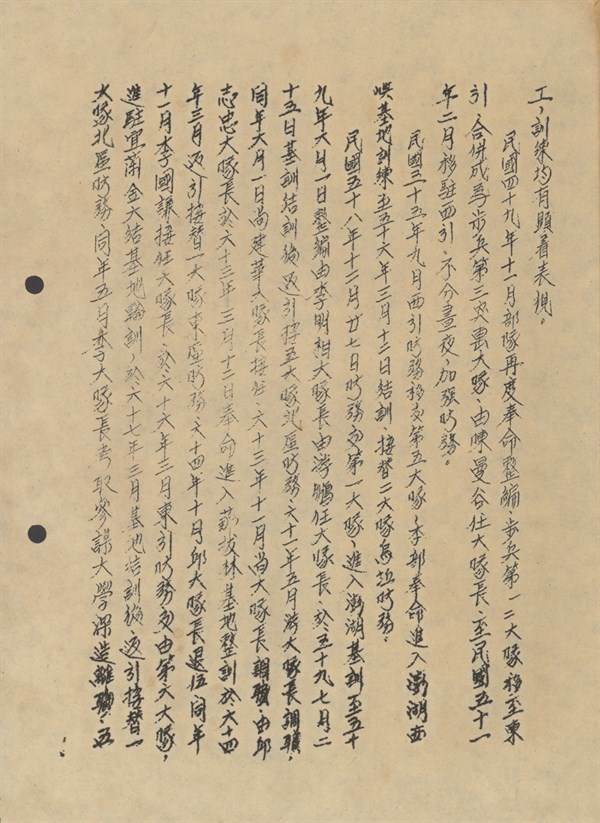 工，訓練均有顯着表現。
民國四十九年十一月部隊再度奉命整編，步兵第一二大隊移至東
引，合併成為步兵第三支區大隊，由陳曼谷任大隊長，至民國五十一
年二月移駐西引，不分晝夜，加強防務。
民國五十五年九月西引防務移交第五大隊，本部奉命進入澎湖西
嶼基地訓練至五十六年三月十二日結訓，接替二大隊烏坵防務。
民國五十八年十二月廿七日防務交第一大隊，進入澎湖基訓至五十
九年六月一日整編由李明相大隊長，由游鵬任大隊長，於五十九七月二
十五日基訓結訓後返引接五大隊北區防務，六十一年五月游大隊長調職，
同年六月一日尚建華大隊長接任，六十三年十一月尚大隊長調職由邱
志忠大隊長於六十三年三月十二日奉命進入蘇拔林基地整訓於六十四
年三月返引接替一大隊東區防務，六十四年十月邱大隊長退伍同年
十一月李國謙接任大隊長，於六十六年三月東引防務交由第六大隊，
進駐宜蘭金六結基地輪訓，於六十七年三月基地結訓後，返引接替一
大隊北區防務，同年五月李大隊長考取參謀大學深造離職，五